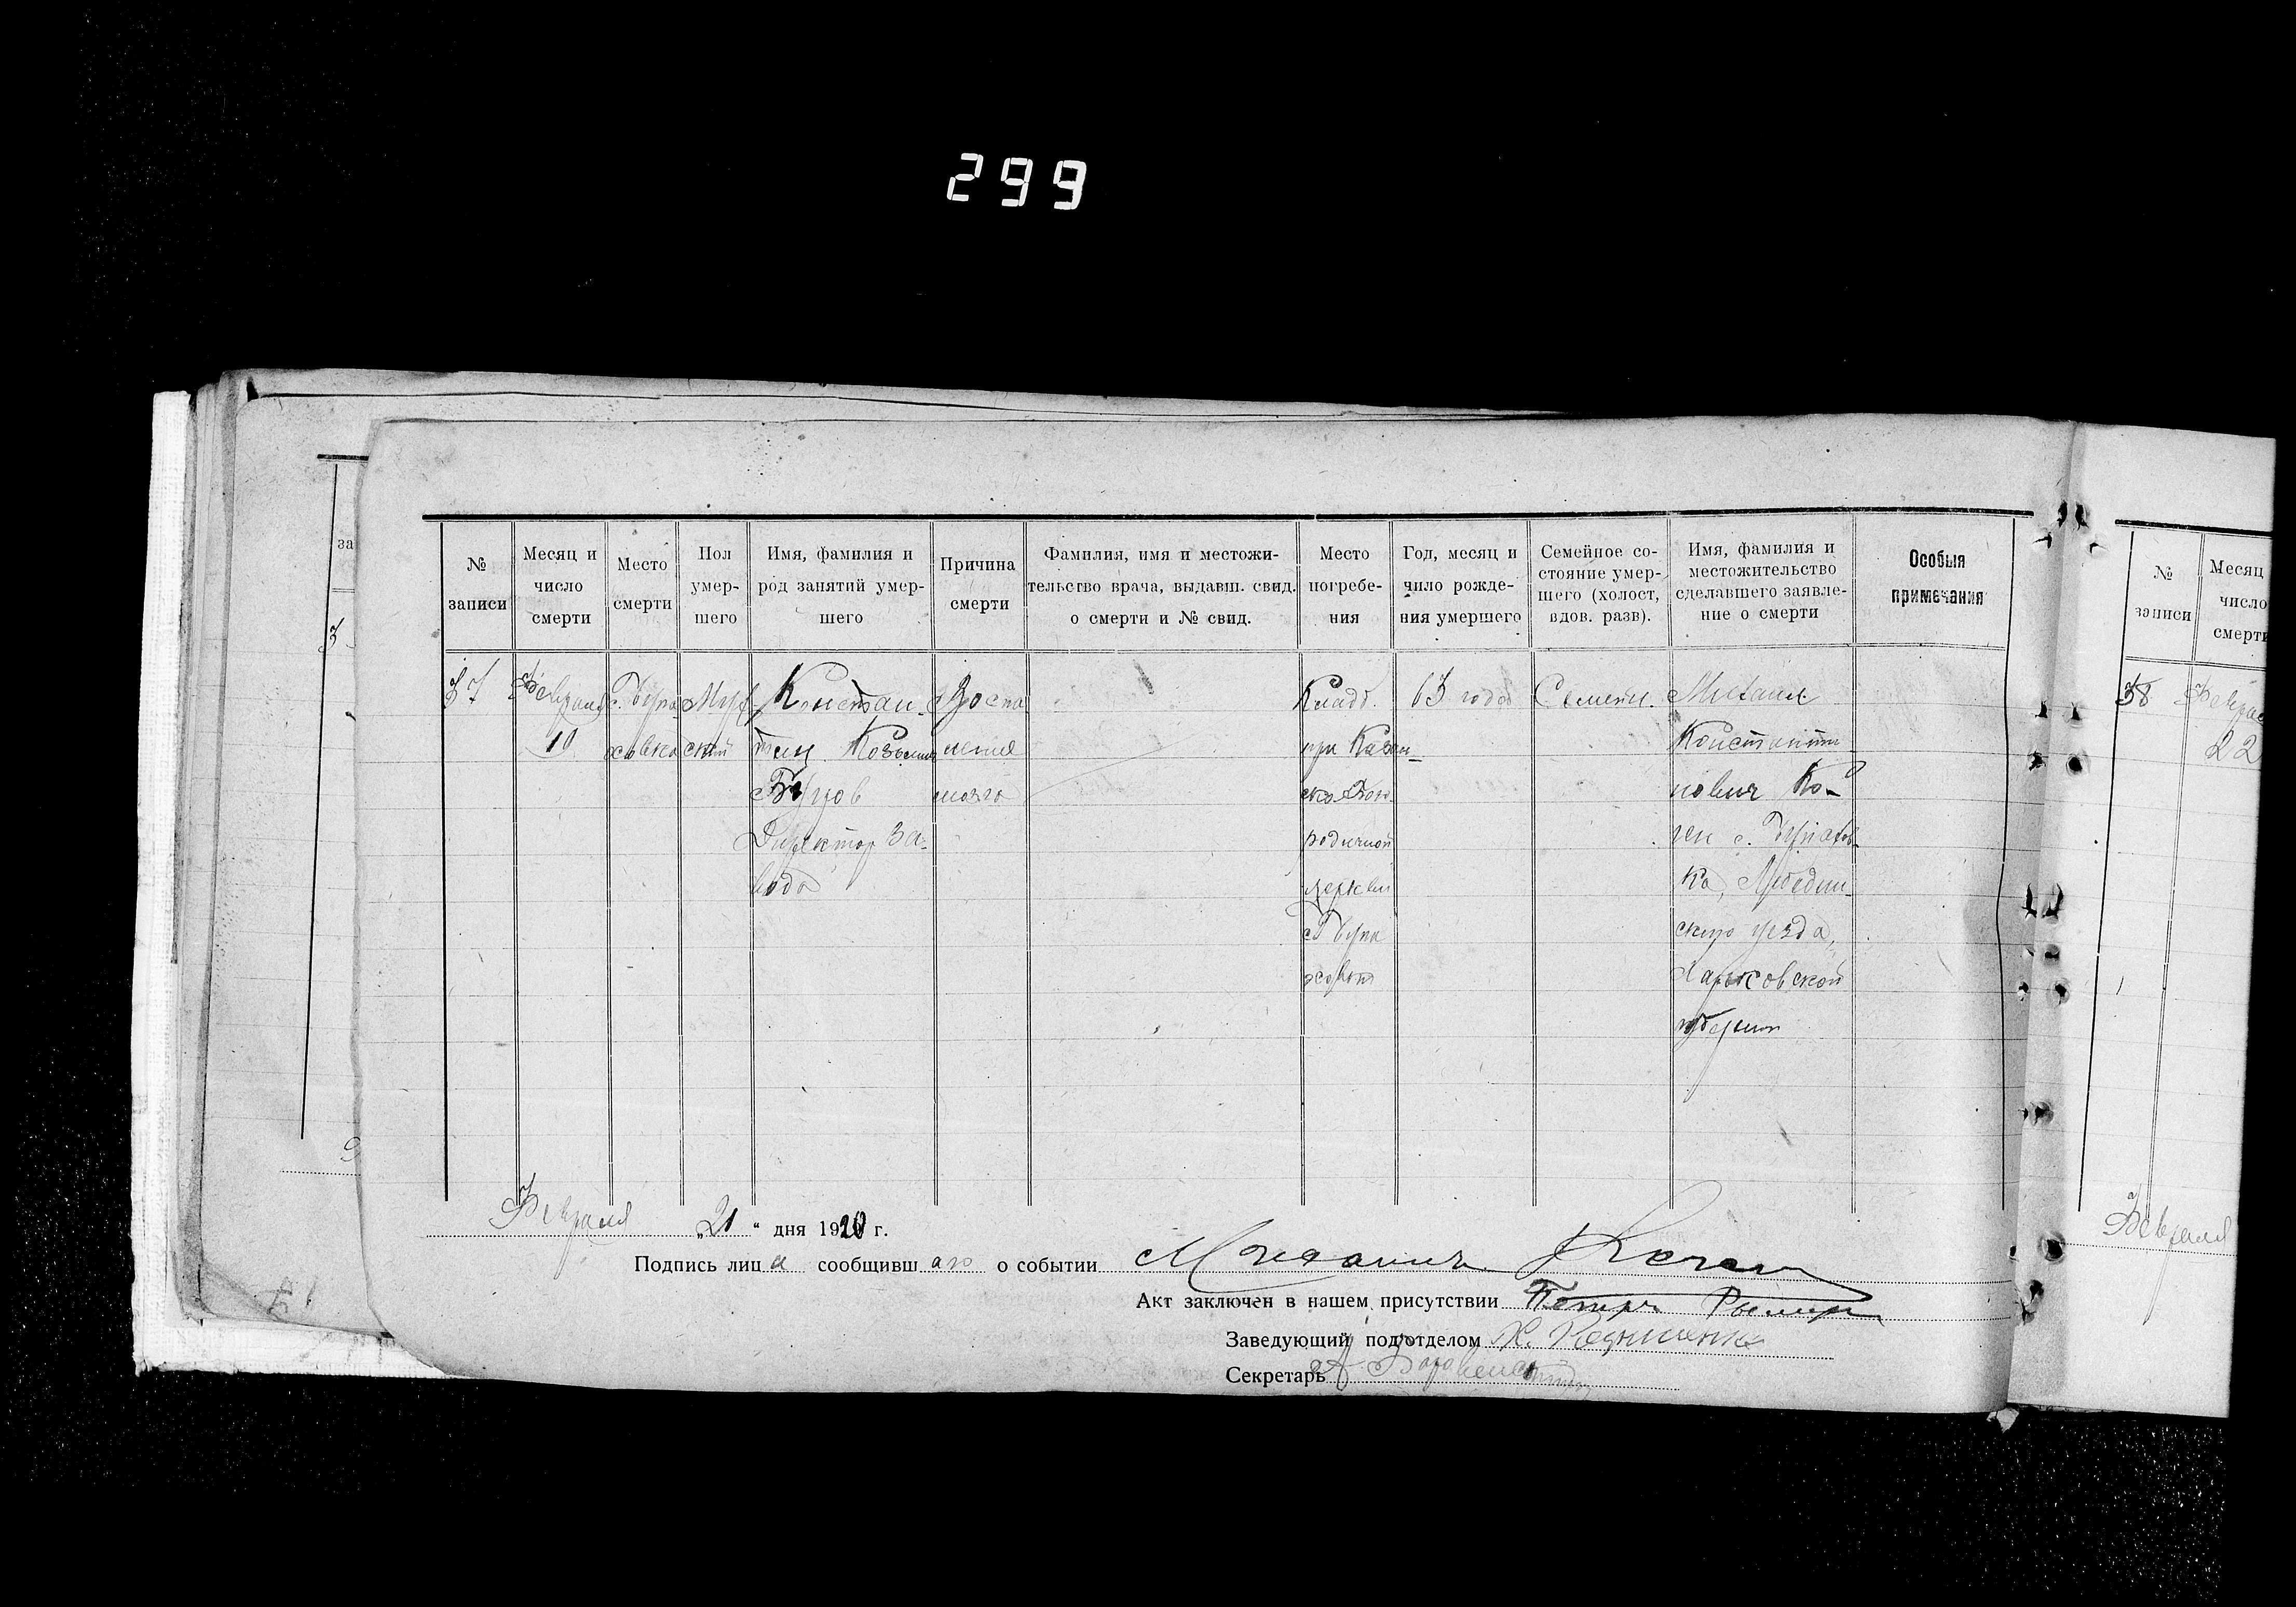 299
за
№ записи
Месяц и число смерти
Место смерти
Пол умершего
Имя, фамилия и род занятий умершего
Причина смерти
Фамилия, имя и местожительство врача, выдавш. свид. о смерти и № свид.
Место погребения
Год, месяц и число рождения умершего
Семейное состояние умершего (холост, вдов. разв).
Имя, фамилия и местожительство сделавшего заявление о смерти
Особыя примечания
37
Февраля
с.
Муж
ский
Констан
тин Козьмич
Бугров
Директор за-
вода
Воспа
ление
мозга
Кладб.
при Казан-
ско-Бого-
родичной
церкви
63 года
Семейн.
Михаил
Константи
нович Ко-
ген с.
ка, Лебедин-
ского уезда,
Харьковской
губернии
Февраля „21“ дня 1920 г.
Подпись лица сообщившаго о событии
Акт заключен в нашем присутствии Петр
Заведующий подотделом
Секретарь
№ записи
Месяц
число
смерти
38
22
Февраля